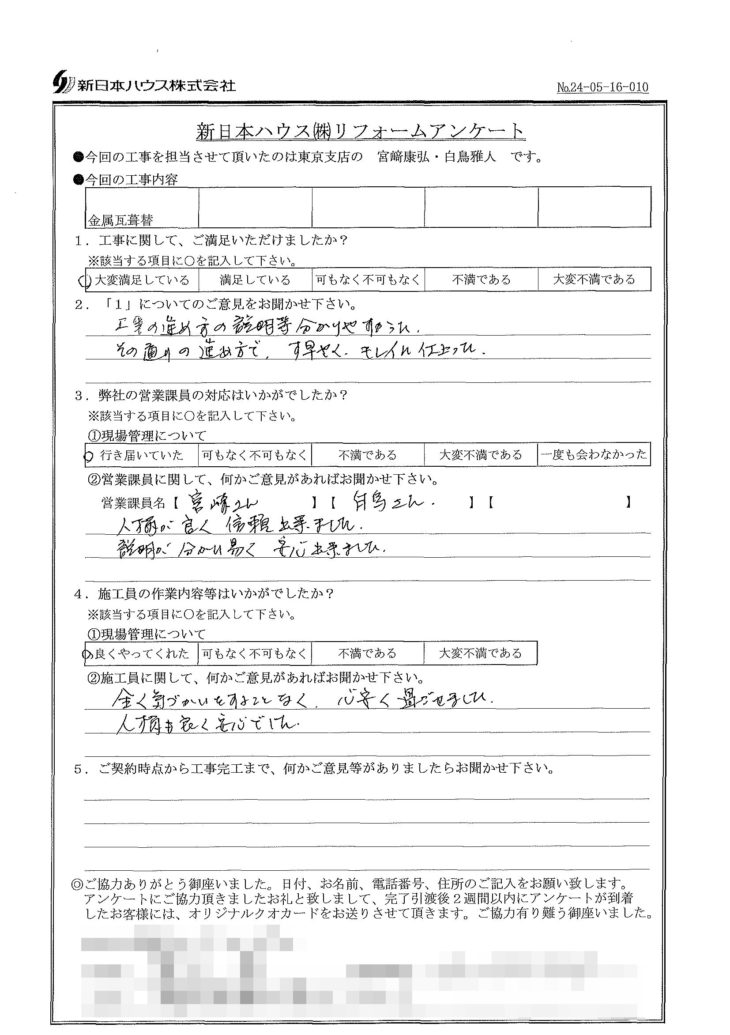 新日本ハウス株式会社
№24-05-16-010
新日本ハウス㈱リフォームアンケート
●今回の工事を担当させて頂いたのは東京支店の 宮﨑康弘・白鳥雅人 です。
●今回の工事内容
金属瓦葺替
1．工事に関して、ご満足いただけましたか？
※該当する項目に〇を記入して下さい。
大変満足している 満足している 可もなく不可もなく 不満である 大変不満である
2．「1」についてのご意見をお聞かせ下さい。
工事の進め方の説明等分かりやすかった.
その通りの進め方で, す早やく、キレイに仕上った.
3．弊社の営業課員の対応はいかがでしたか？
※該当する項目に〇を記入して下さい。
①現場管理について
行き届いていた 可もなく不可もなく 不満である 大変不満である 一度も会わなかった
②営業課員に関して、何かご意見があればお聞かせ下さい。
営業課員名【 宮崎さん 】【 白鳥さん. 】【 】
人柄が良く 信頼出来ました.
説明が 分かり易く 安心出来ました.
4．施工員の作業内容等はいかがでしたか？
※該当する項目に〇を記入して下さい。
①現場管理について
良くやってくれた 可もなく不可もなく 不満である 大変不満である
②施工員に関して、何かご意見があればお聞かせ下さい。
全く気づかいをすることなく, 心安く過ごせました.
人柄も良く安心でした.
5．ご契約時点から工事完工まで、何かご意見等がありましたらお聞かせ下さい。
◎ご協力ありがとう御座いました。日付、お名前、電話番号、住所のご記入をお願い致します。
アンケートにご協力頂きましたお礼と致しまして、完了引渡後２週間以内にアンケートが到着
したお客様には、オリジナルクオカードをお送りさせて頂きます。ご協力有り難う御座いました。